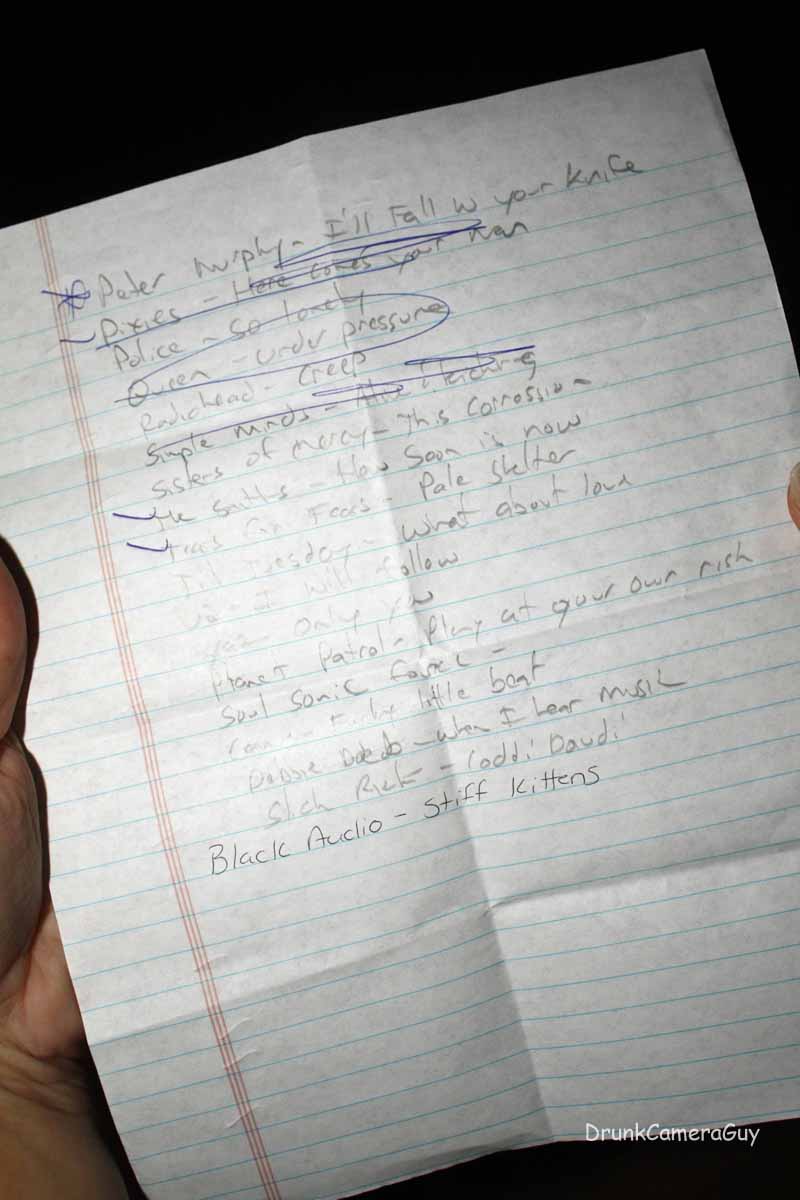 Peter Murphy - I'll Fall w your knife
Pixies - Here comes your man
Police - So lonely
Queen - under pressure
Radiohead - Creep
Simple Minds - Alive
Sisters of Mercy - This Corrossion
The Smiths - How Soon is now
Tears For Fears - Pale Shelter
Til Tuesday - What about love
U2 - I will follow
Yaz - only you
Planet Patrol - Play at your own risk
Soul Sonic Force -
little beat
Debbie Deb - when I hear music
Slick Rick - Laddi Daudi
Black Audio - Stiff Kittens
DrunkCameraGuy